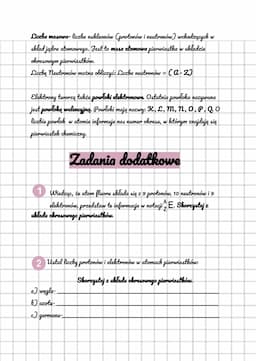 Liczba masowa- liczba nukleonów (protonów i neutronów) wchodzących w
skład jądra atomowego. Jest to masa atomowa pierwiastka w układzie
okresowym pierwiastków.
Liczbę Neutronów można obliczyć: Liczba neutronów = (A-Z)
Elektrony tworzą także powłoki elektronowe. Ostatnia powłoka nazywana
jest powłoką walencyjną. Powłoki mają nazwy: K, L, M, N, O, P, Q. O
liczbie powłok w atomie informuje nas numer okresu, w którym znajduje się
pierwiastek chemiczny.
Zadania dodatkowe
1 Wiedząc, że atom fluoru składa się z 9 protonów, 10 neutronów i 9
elektronów, przedstaw te informacje w notacji A Z E. Skorzystaj z
układu okresowego pierwiastków.
2 Ustal liczbę protonów i elektronów w atomach pierwiastków:
Skorzystaj z układu okresowego pierwiastków.
a) węgla-
b) azotu-
c) germanu-